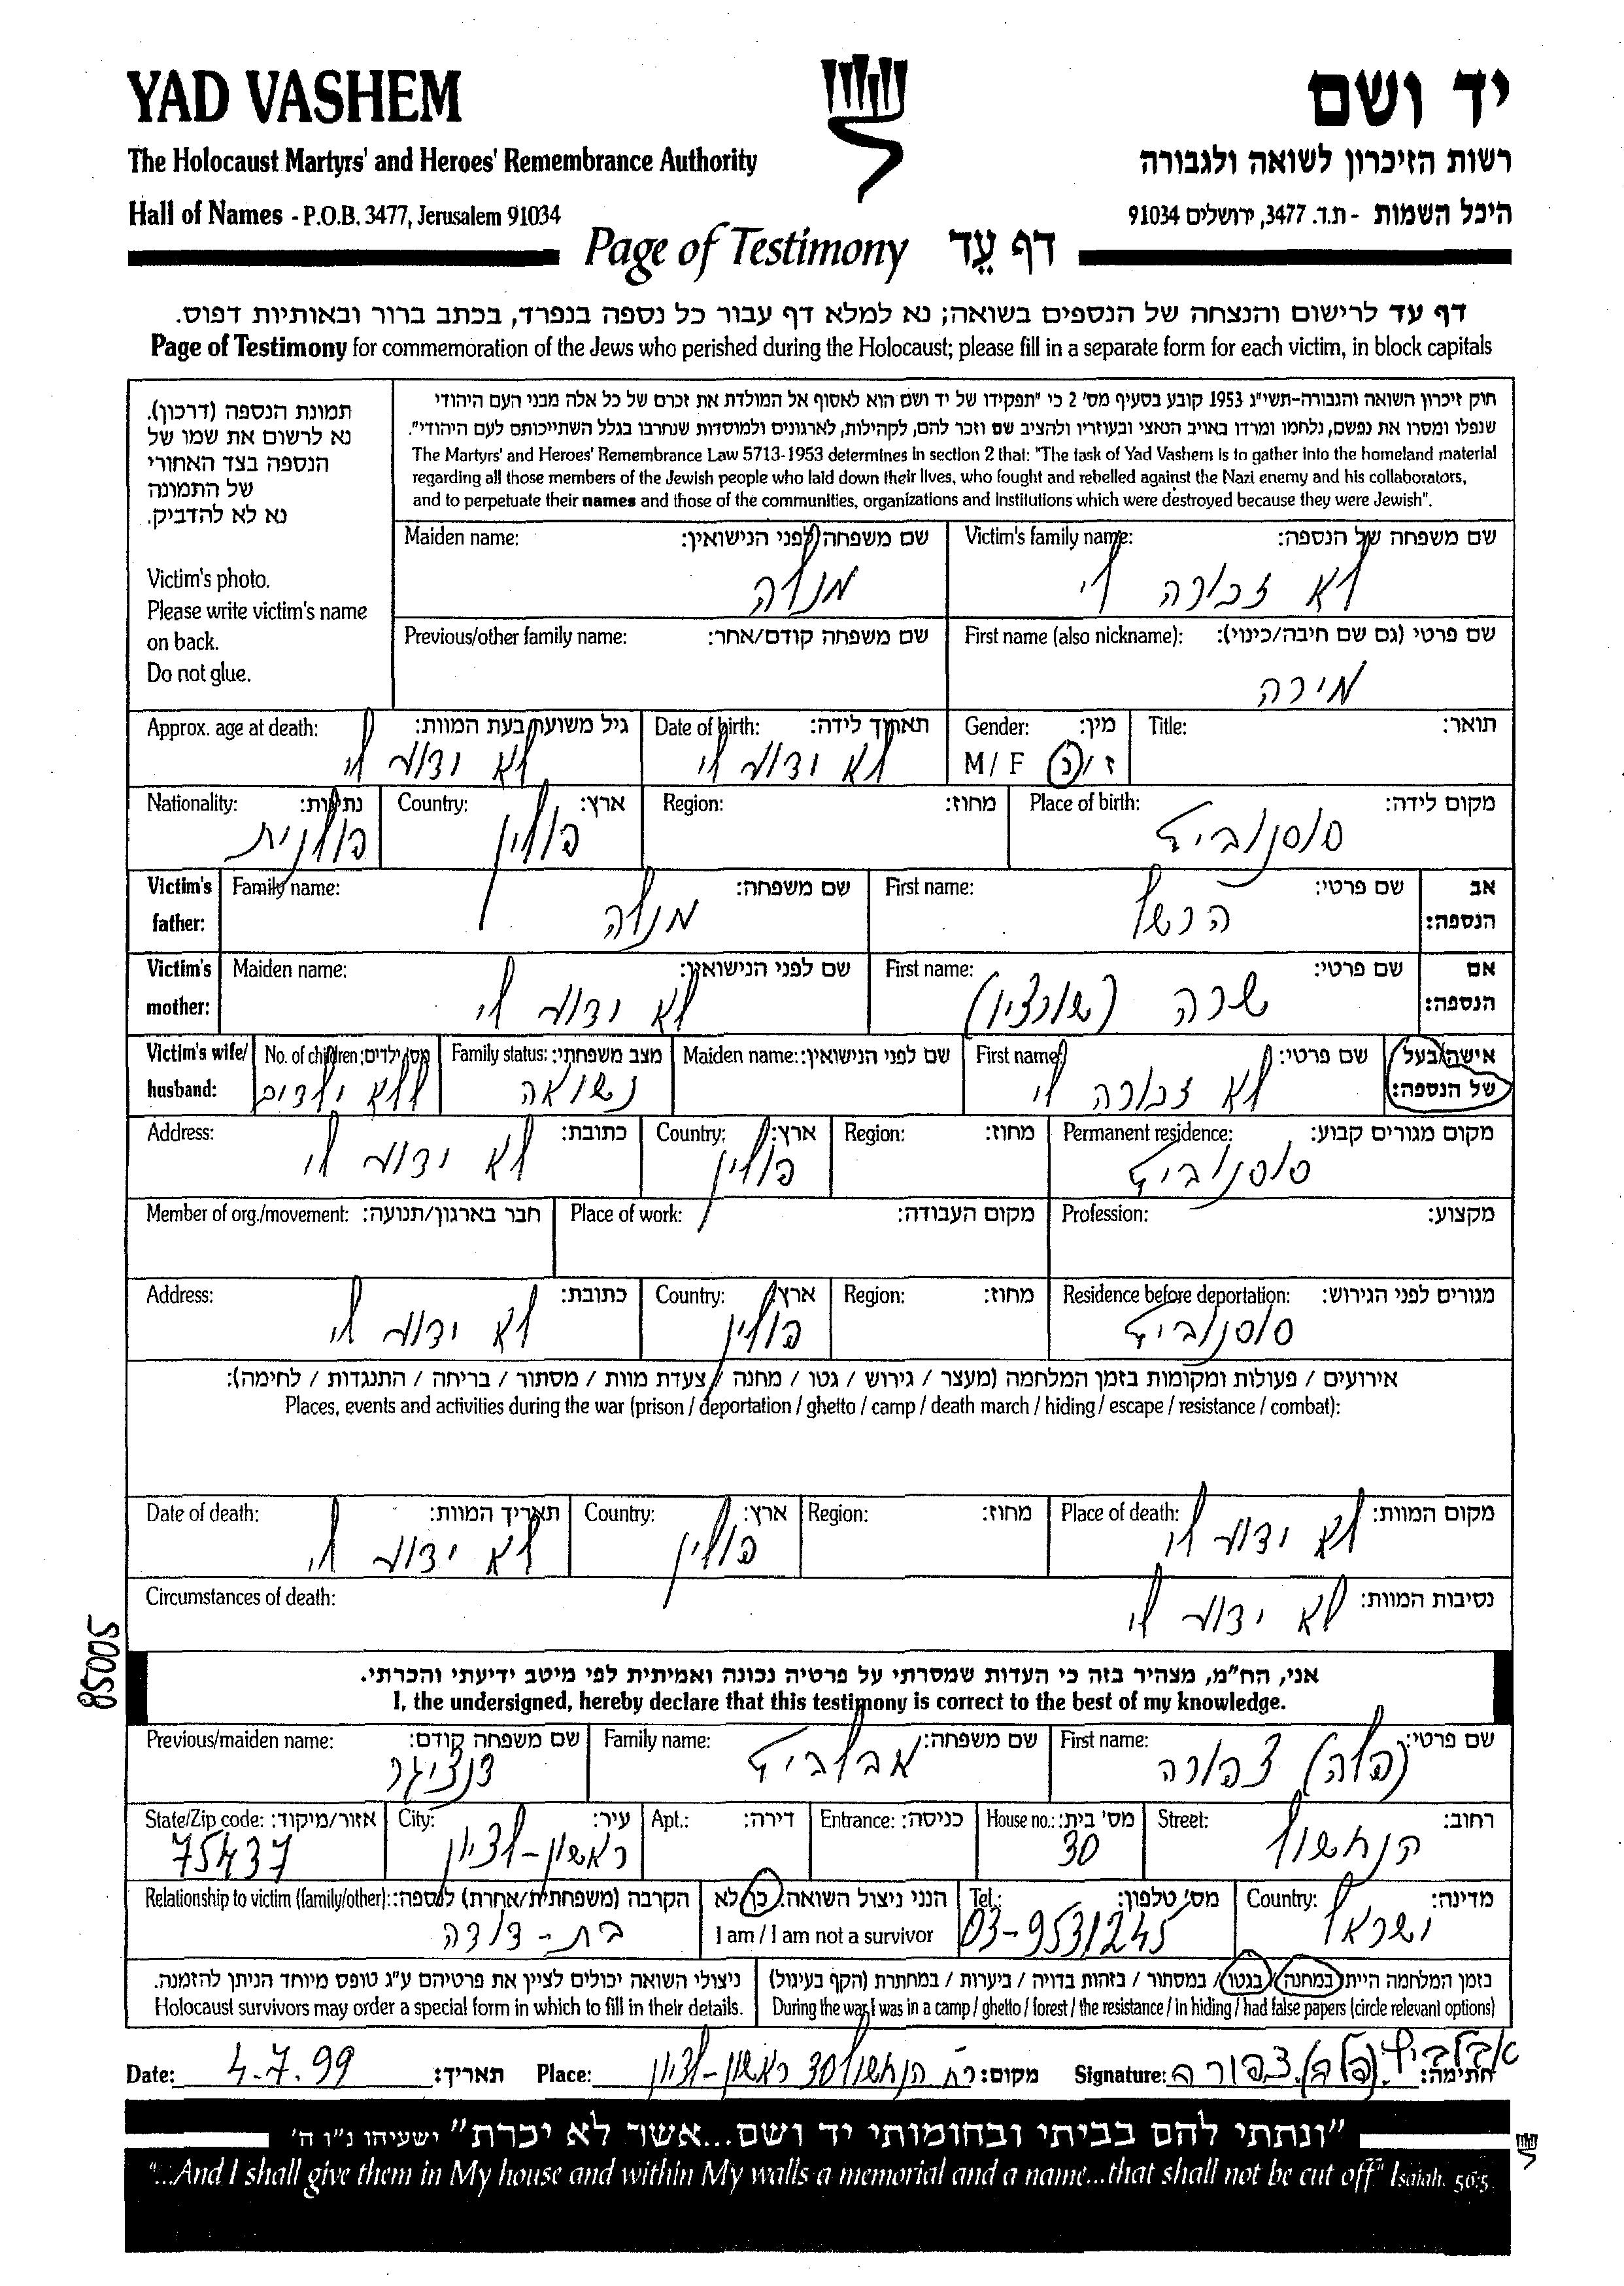 YAD VASHEM יד ושם
The Holocaust Martyrs' and Heroes' Remembrance Authority רשות הזיכרון לשואה ולגבורה
Hall of Names - P.O.B. 3477, Jerusalem 91034 היכל השמות - ת.ד. 3477, ירושלים 91034
Page of Testimony דף עֵד
דף עד לרישום והנצחה של הנספים בשואה; נא למלא דף עבור כל נספה בנפרד, בכתב ברור ובאותיות דפוס.
Page of Testimony for commemoration of the Jews who perished during the Holocaust; please fill in a separate form for each victim, in block capitals
תמונת הנספה (דרכון).
נא לרשום את שמו של
הנספה בצד האחורי
של התמונה
נא לא להדביק.
Victim's photo.
Please write victim's name
on back.
Do not glue.
חוק זיכרון השואה והגבורה-תשי"ג 1953 קובע בסעיף מס' 2 כי "תפקידו של יד ושם הוא לאסוף אל המולדת את זכרם של כל אלה מבני העם היהודי
שנפלו ומסרו את נפשם, נלחמו ומרדו באויב הנאצי ובעוזריו ולהציב שם וזכר להם, לקהילות, לארגונים ולמוסדות שנחרבו בגלל השתייכותם לעם היהודי".
The Martyrs' and Heroes' Remembrance Law 5713-1953 determines in section 2 that: "The task of Yad Vashem is to gather into the homeland material
regarding all those members of the Jewish people who laid down their lives, who fought and rebelled against the Nazi enemy and his collaborators,
and to perpetuate their names and those of the communities, organizations and institutions which were destroyed because they were Jewish".
Victim's family name: שם משפחה של הנספה: Maiden name: שם משפחה לפני הנישואין:
לא זכורה לי מנלה
First name (also nickname): שם פרטי (גם שם חיבה/כינוי): Previous/other family name: שם משפחה קודם/אחר:
מירה
Title: תואר: Gender: מין: Date of birth: תאריך לידה: Approx. age at death: גיל משוער בעת המוות:
M / F ז / נ לא ידוע לי לא ידוע לי
Place of birth: מקום לידה: Region: מחוז: Country: ארץ: Nationality: נתינות:
סוסנוביץ פולין פולנית
Victim's father: אב הנספה: First name: שם פרטי: Family name: שם משפחה:
הרשל מנלה
Victim's mother: אם הנספה: First name: שם פרטי: Maiden name: שם לפני הנישואין:
שרה לא ידוע לי
Victim's wife/ husband: אישה/בעל של הנספה: First name: שם פרטי: Maiden name: שם לפני הנישואין: Family status: מצב משפחתי: No. of children: מס' ילדים:
לא זכורה לי נשואה ללא ילדים
Permanent residence: מקום מגורים קבוע: Region: מחוז: Country: ארץ: Address: כתובת:
סוסנוביץ פולין לא ידוע לי
Profession: מקצוע: Place of work: מקום העבודה: Member of org./movement: חבר בארגון/תנועה:
Residence before deportation: מגורים לפני הגירוש: Region: מחוז: Country: ארץ: Address: כתובת:
סוסנוביץ פולין לא ידוע לי
אירועים / פעולות ומקומות בזמן המלחמה (מעצר / גירוש / גטו / מחנה / צעדת מוות / מסתור / בריחה / התנגדות / לחימה):
Places, events and activities during the war (prison / deportation / ghetto / camp / death march / hiding / escape / resistance / combat):
Place of death: מקום המוות: Region: מחוז: Country: ארץ: Date of death: תאריך המוות:
לא ידוע לי פולין לא ידוע לי
Circumstances of death: נסיבות המוות:
לא ידוע לי
85005
אני, הח"מ, מצהיר בזה כי העדות שמסרתי על פרטיה נכונה ואמיתית לפי מיטב ידיעתי והכרתי.
I, the undersigned, hereby declare that this testimony is correct to the best of my knowledge.
First name: שם פרטי: Family name: שם משפחה: Previous/maiden name: שם משפחה קודם:
(פלה) צפורה אבלביץ דנציגר
Street: רחוב: House no.: מס' בית: Entrance: כניסה: Apt.: דירה: City: עיר: State/Zip code: אזור/מיקוד:
הנחשול 30 ראשון-לציון 75437
Country: מדינה: Tel.: מס' טלפון: הנני ניצול השואה: כן לא Relationship to victim (family/other): הקרבה (משפחתית/אחרת) לנספה:
ישראל 03-9531245 I am / I am not a survivor בת-דודה
בזמן המלחמה הייתי במחנה / בגטו / במסתור / בזהות בדויה / ביערות / במחתרת (הקף בעיגול) ניצולי השואה יכולים לציין את פרטיהם ע"ג טופס מיוחד הניתן להזמנה.
During the war I was in a camp / ghetto / forest / the resistance / in hiding / had false papers (circle relevant options) Holocaust survivors may order a special form in which to fill in their details.
Date: 4.7.99 תאריך: Place: רח הנחשול 30 ראשון-לציון מקום: Signature: אבלביץ (פלה) צפורה חתימה:
"ונתתי להם בביתי ובחומותי יד ושם...אשר לא יכרת" ישעיהו נ"ו ה'
"...And I shall give them in My house and within My walls a memorial and a name...that shall not be cut off" Isaiah. 56:5